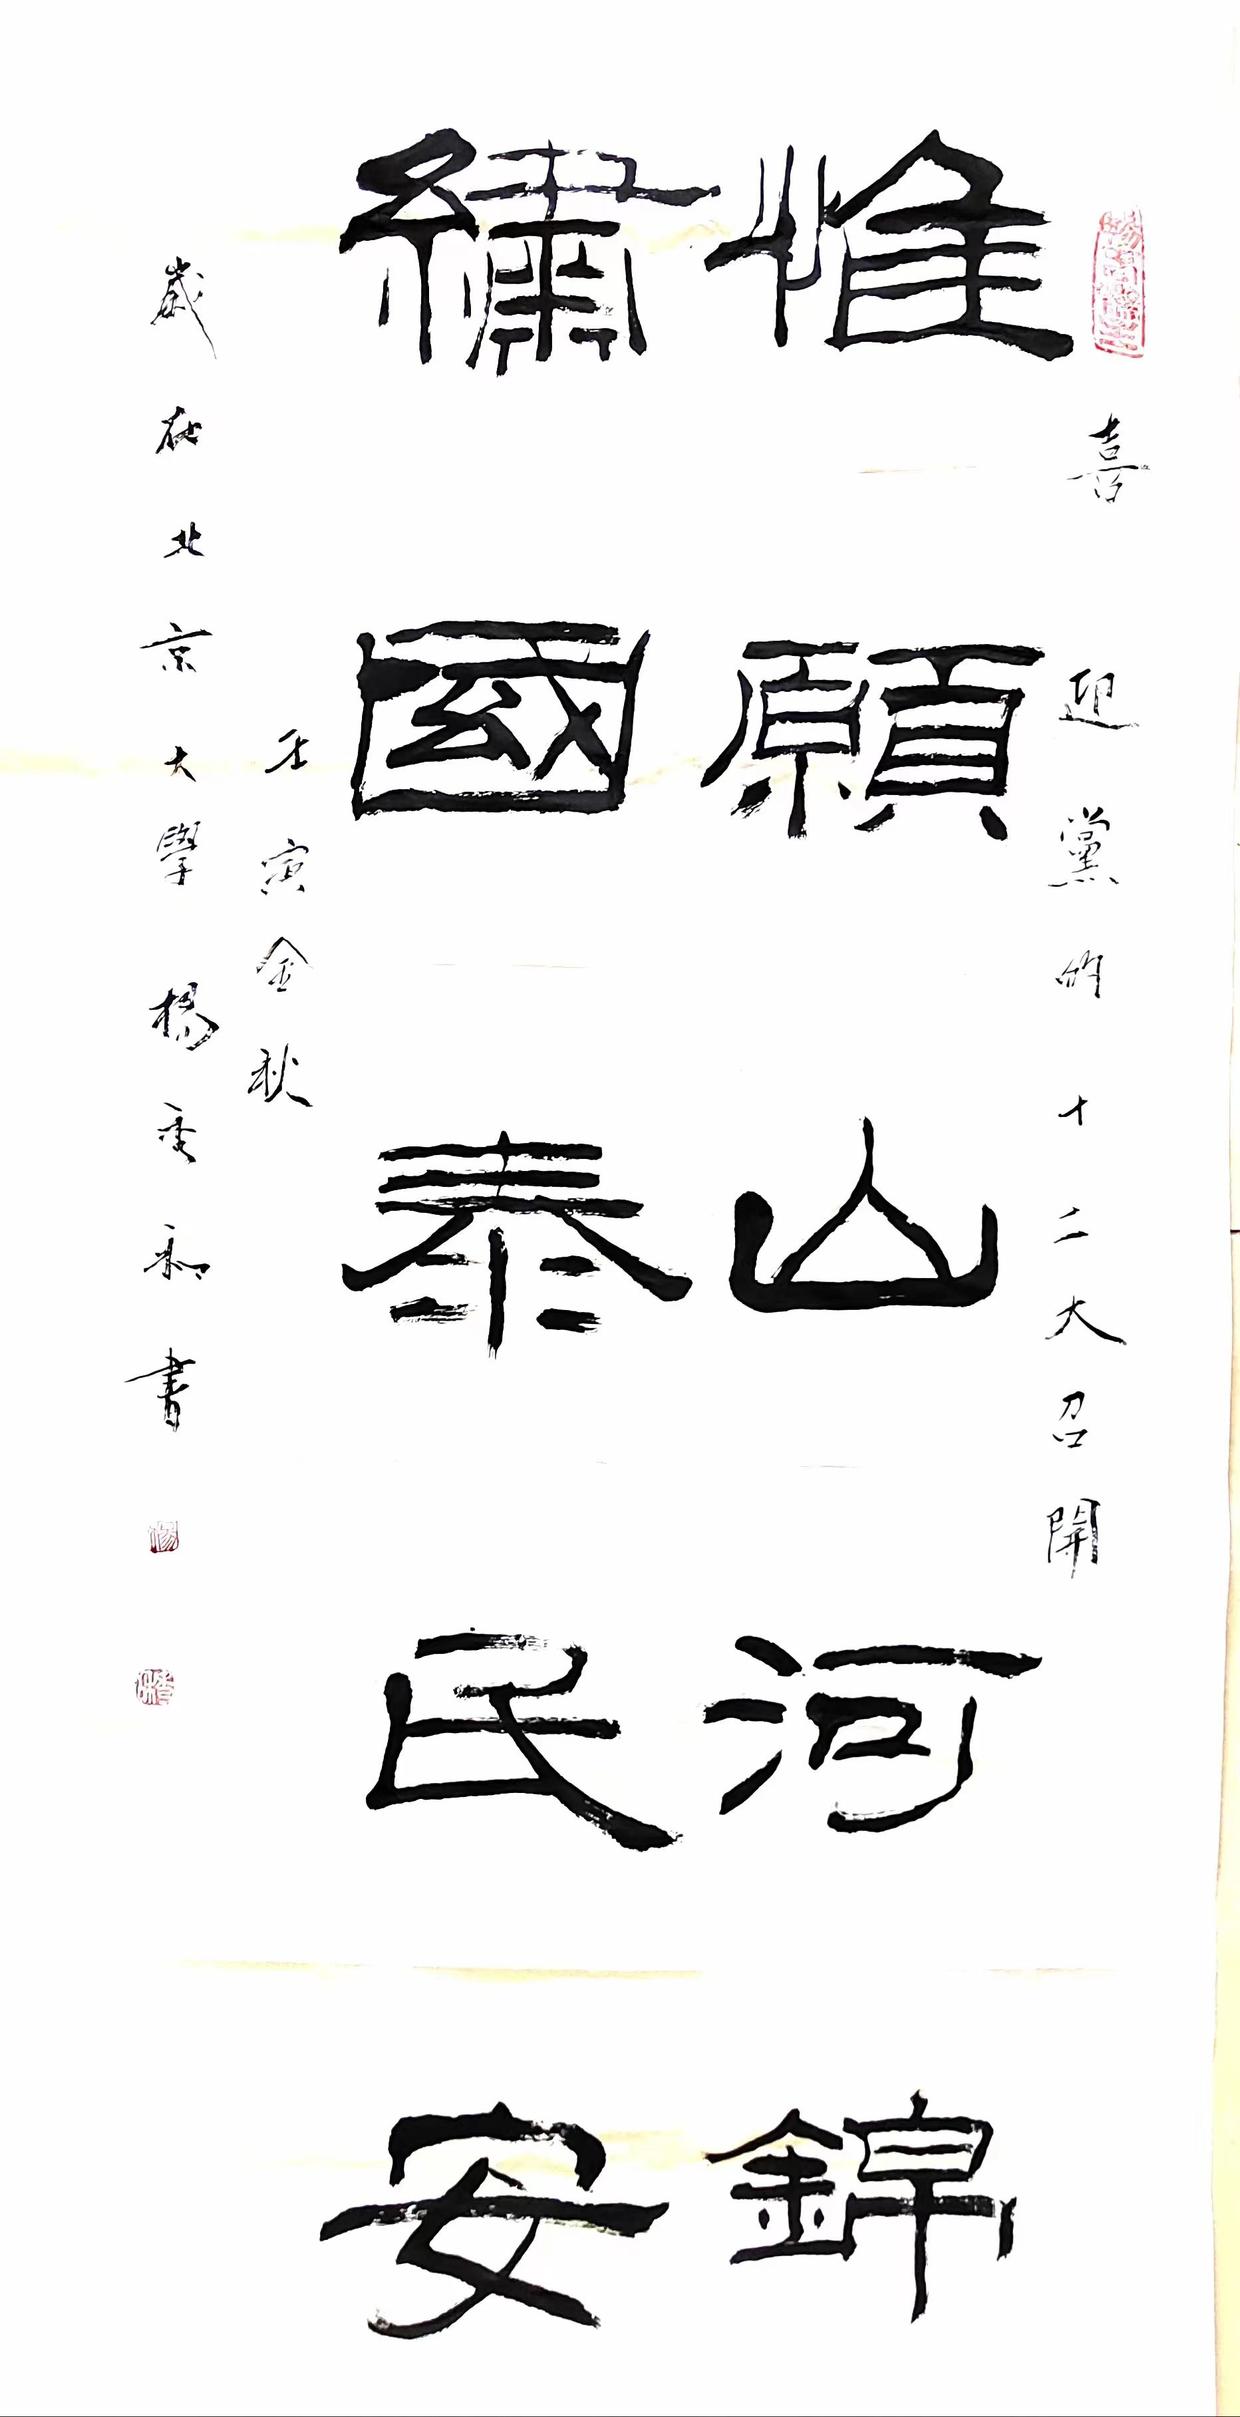 喜迎黨的十二大召開
惟願山河錦
繡國泰民安
壬寅金秋
歲在北京大學楊秀和書